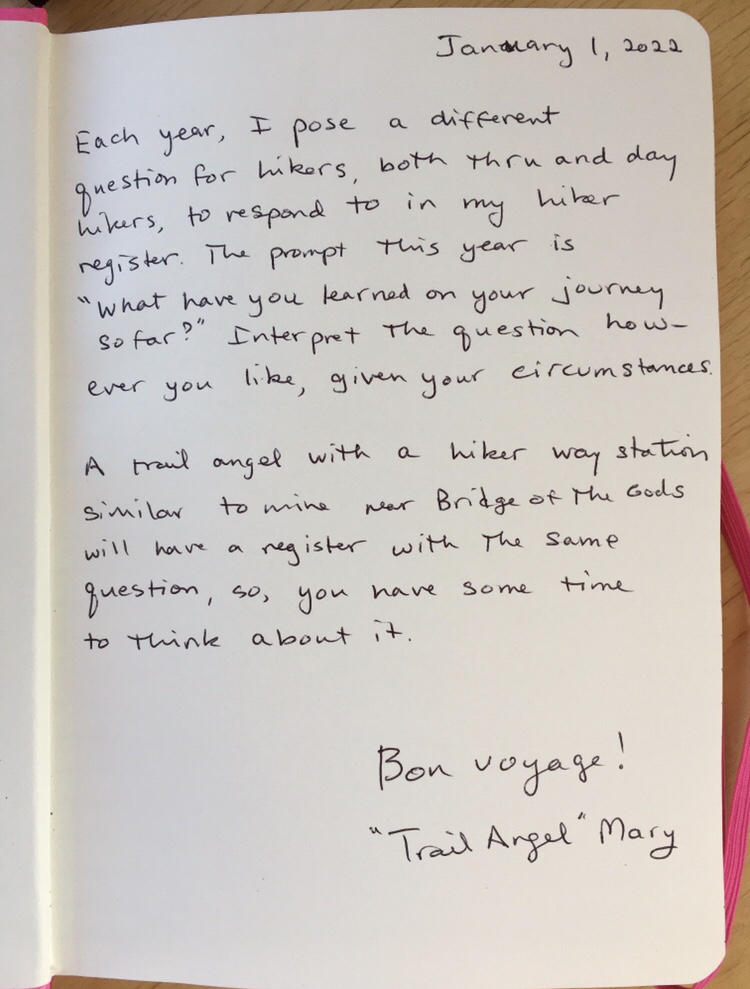 January 1, 2022
Each year, I pose a different
question for hikers, both thru and day
hikers, to respond to in my hiker
register. The prompt this year is
"What have you learned on your journey
so far?" Interpret the question how-
ever you like, given your circumstances.
A trail angel with a hiker way station
similar to mine near Bridge of the Gods
will have a register with the same
question, so, you have some time
to think about it.
Bon voyage!
"Trail Angel" Mary